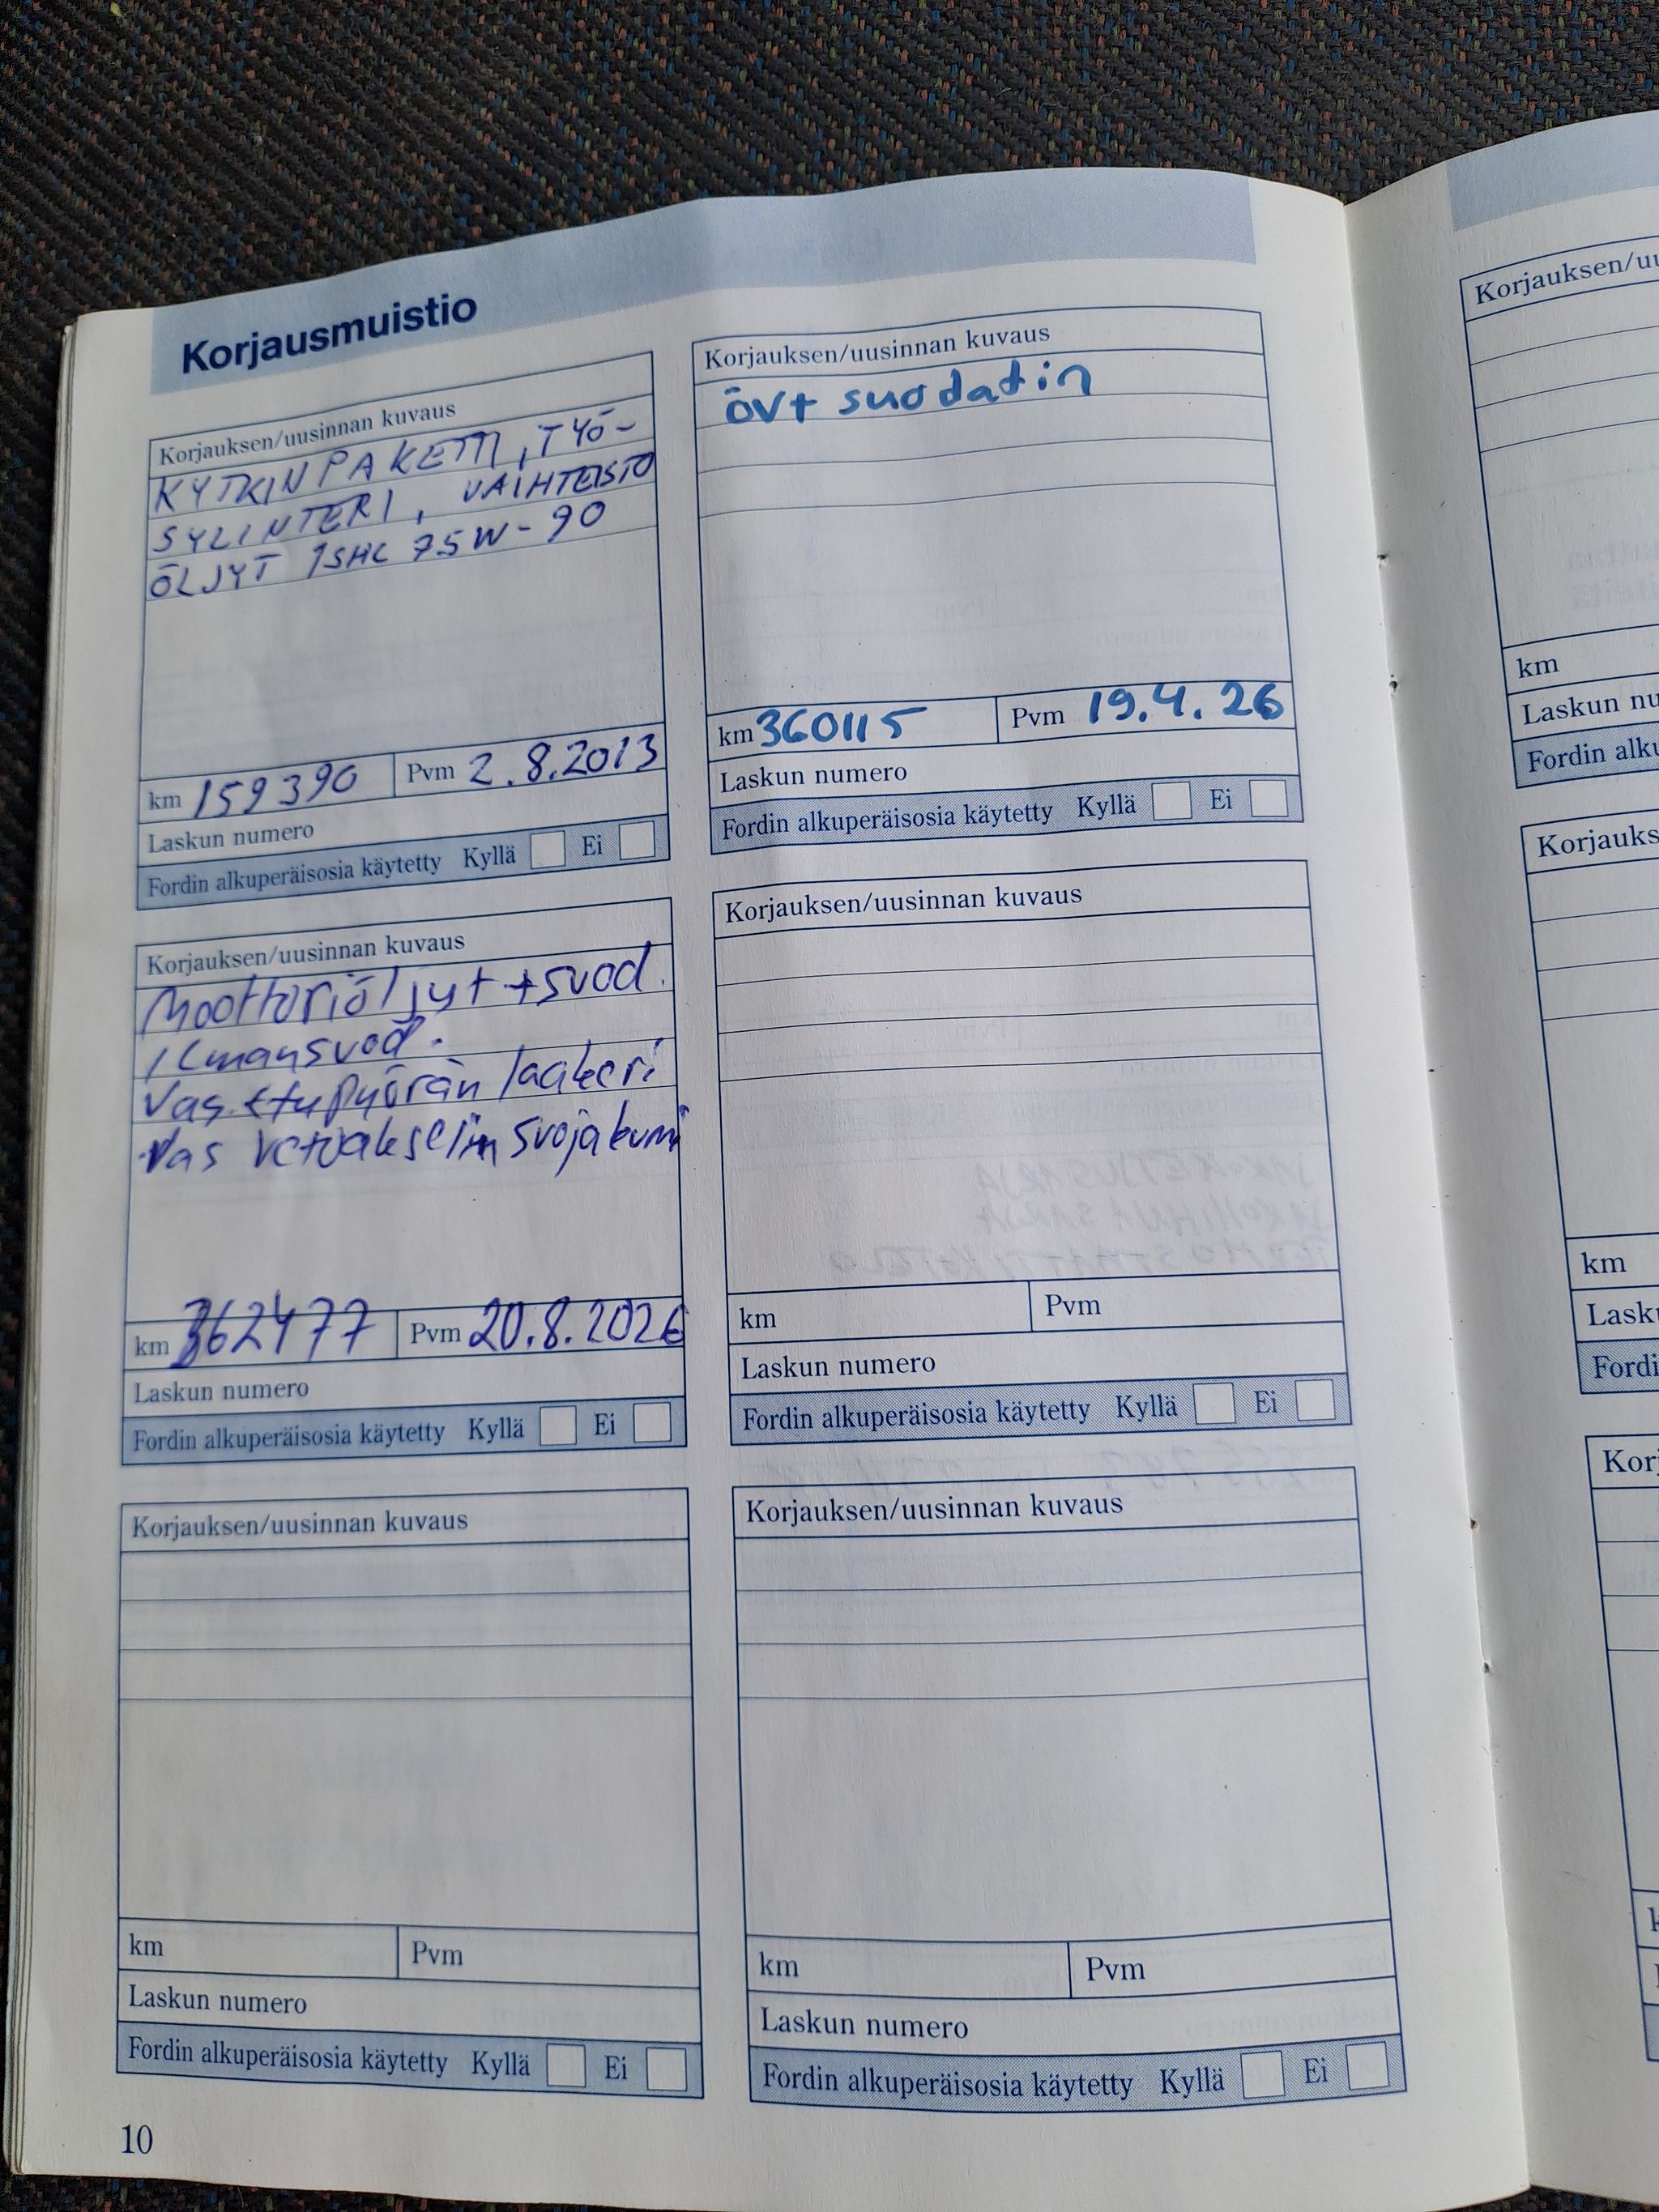 Korjausmuistio
Korjauksen/uusinnan kuvaus
KYTKINPAKETTI, TYÖ-
SYLINTERI, VAIHTEISTO
ÖLJYT SHC 75W-90
km 159390 Pvm 2.8.2013
Laskun numero
Fordin alkuperäisosia käytetty Kyllä Ei
Korjauksen/uusinnan kuvaus
Moottoriöljyt + suod.
Ilmansuod.
Vas. etupyörän laakeri
Vas vetoakselin suojakumi
km 362477 Pvm 20.8.2026
Laskun numero
Fordin alkuperäisosia käytetty Kyllä Ei
Korjauksen/uusinnan kuvaus
km Pvm
Laskun numero
Fordin alkuperäisosia käytetty Kyllä Ei
10
Korjauksen/uusinnan kuvaus
övt suodatin
km 360115 Pvm 19.4.26
Laskun numero
Fordin alkuperäisosia käytetty Kyllä Ei
Korjauksen/uusinnan kuvaus
km Pvm
Laskun numero
Fordin alkuperäisosia käytetty Kyllä Ei
Korjauksen/uusinnan kuvaus
km Pvm
Laskun numero
Fordin alkuperäisosia käytetty Kyllä Ei
Korjauksen/uu
km
Laskun nu
Fordin alku
Korjauks
km
Lask
Fordi
Kor